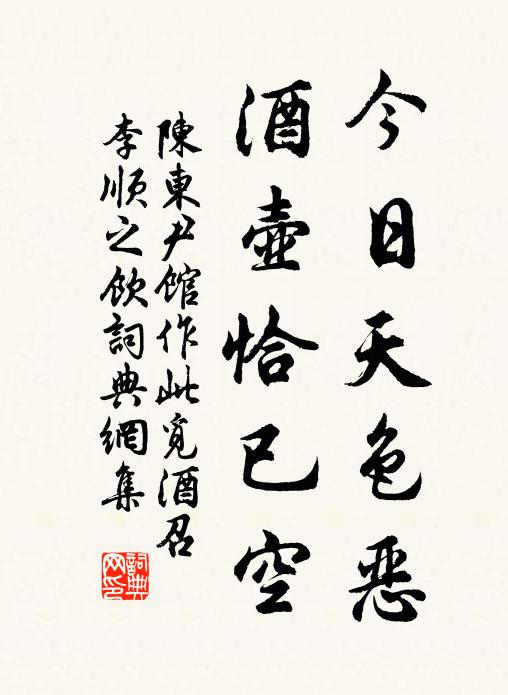 今日天色惡
酒壺恰已空
陳東尹館作此覓酒召
李順之飲詞典網集
詞典網印